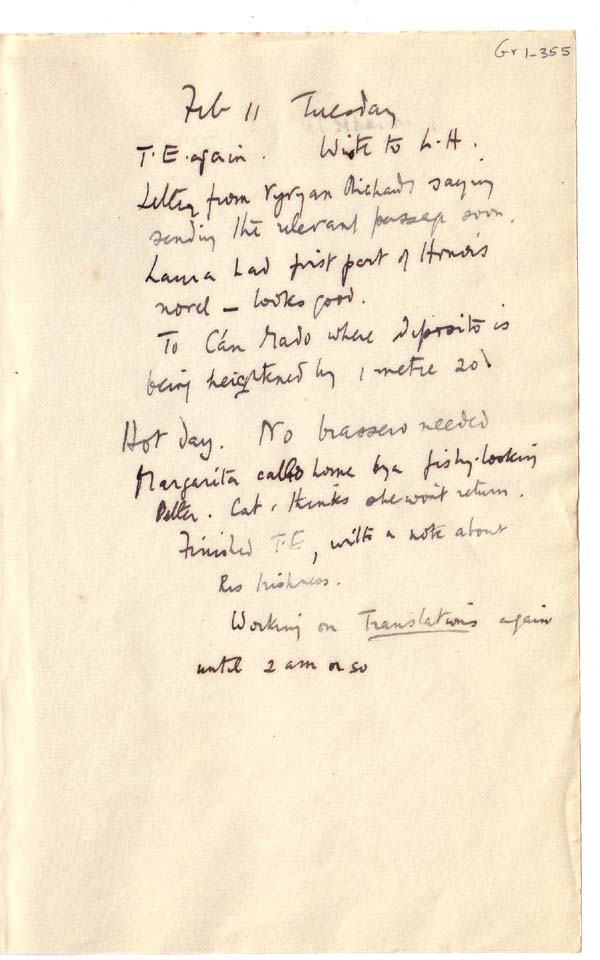 Gr 1-355
Feb 11 Tuesday
T.E. again. Wrote to L.H.
Letter from Vyvyan Richards saying
sending the relevant passage soon.
Laura had first part of Honor's
novel – looks good.
To Cán Mado where Deposito is
being heightened by 1 metre 20
Hot day. No brassero needed
Margarita called home by a fishy-looking
letter. Cat. thinks she won't return.
Finished T.E, with a note about
his Irishness.
Working on Translations again
until 2 am or so